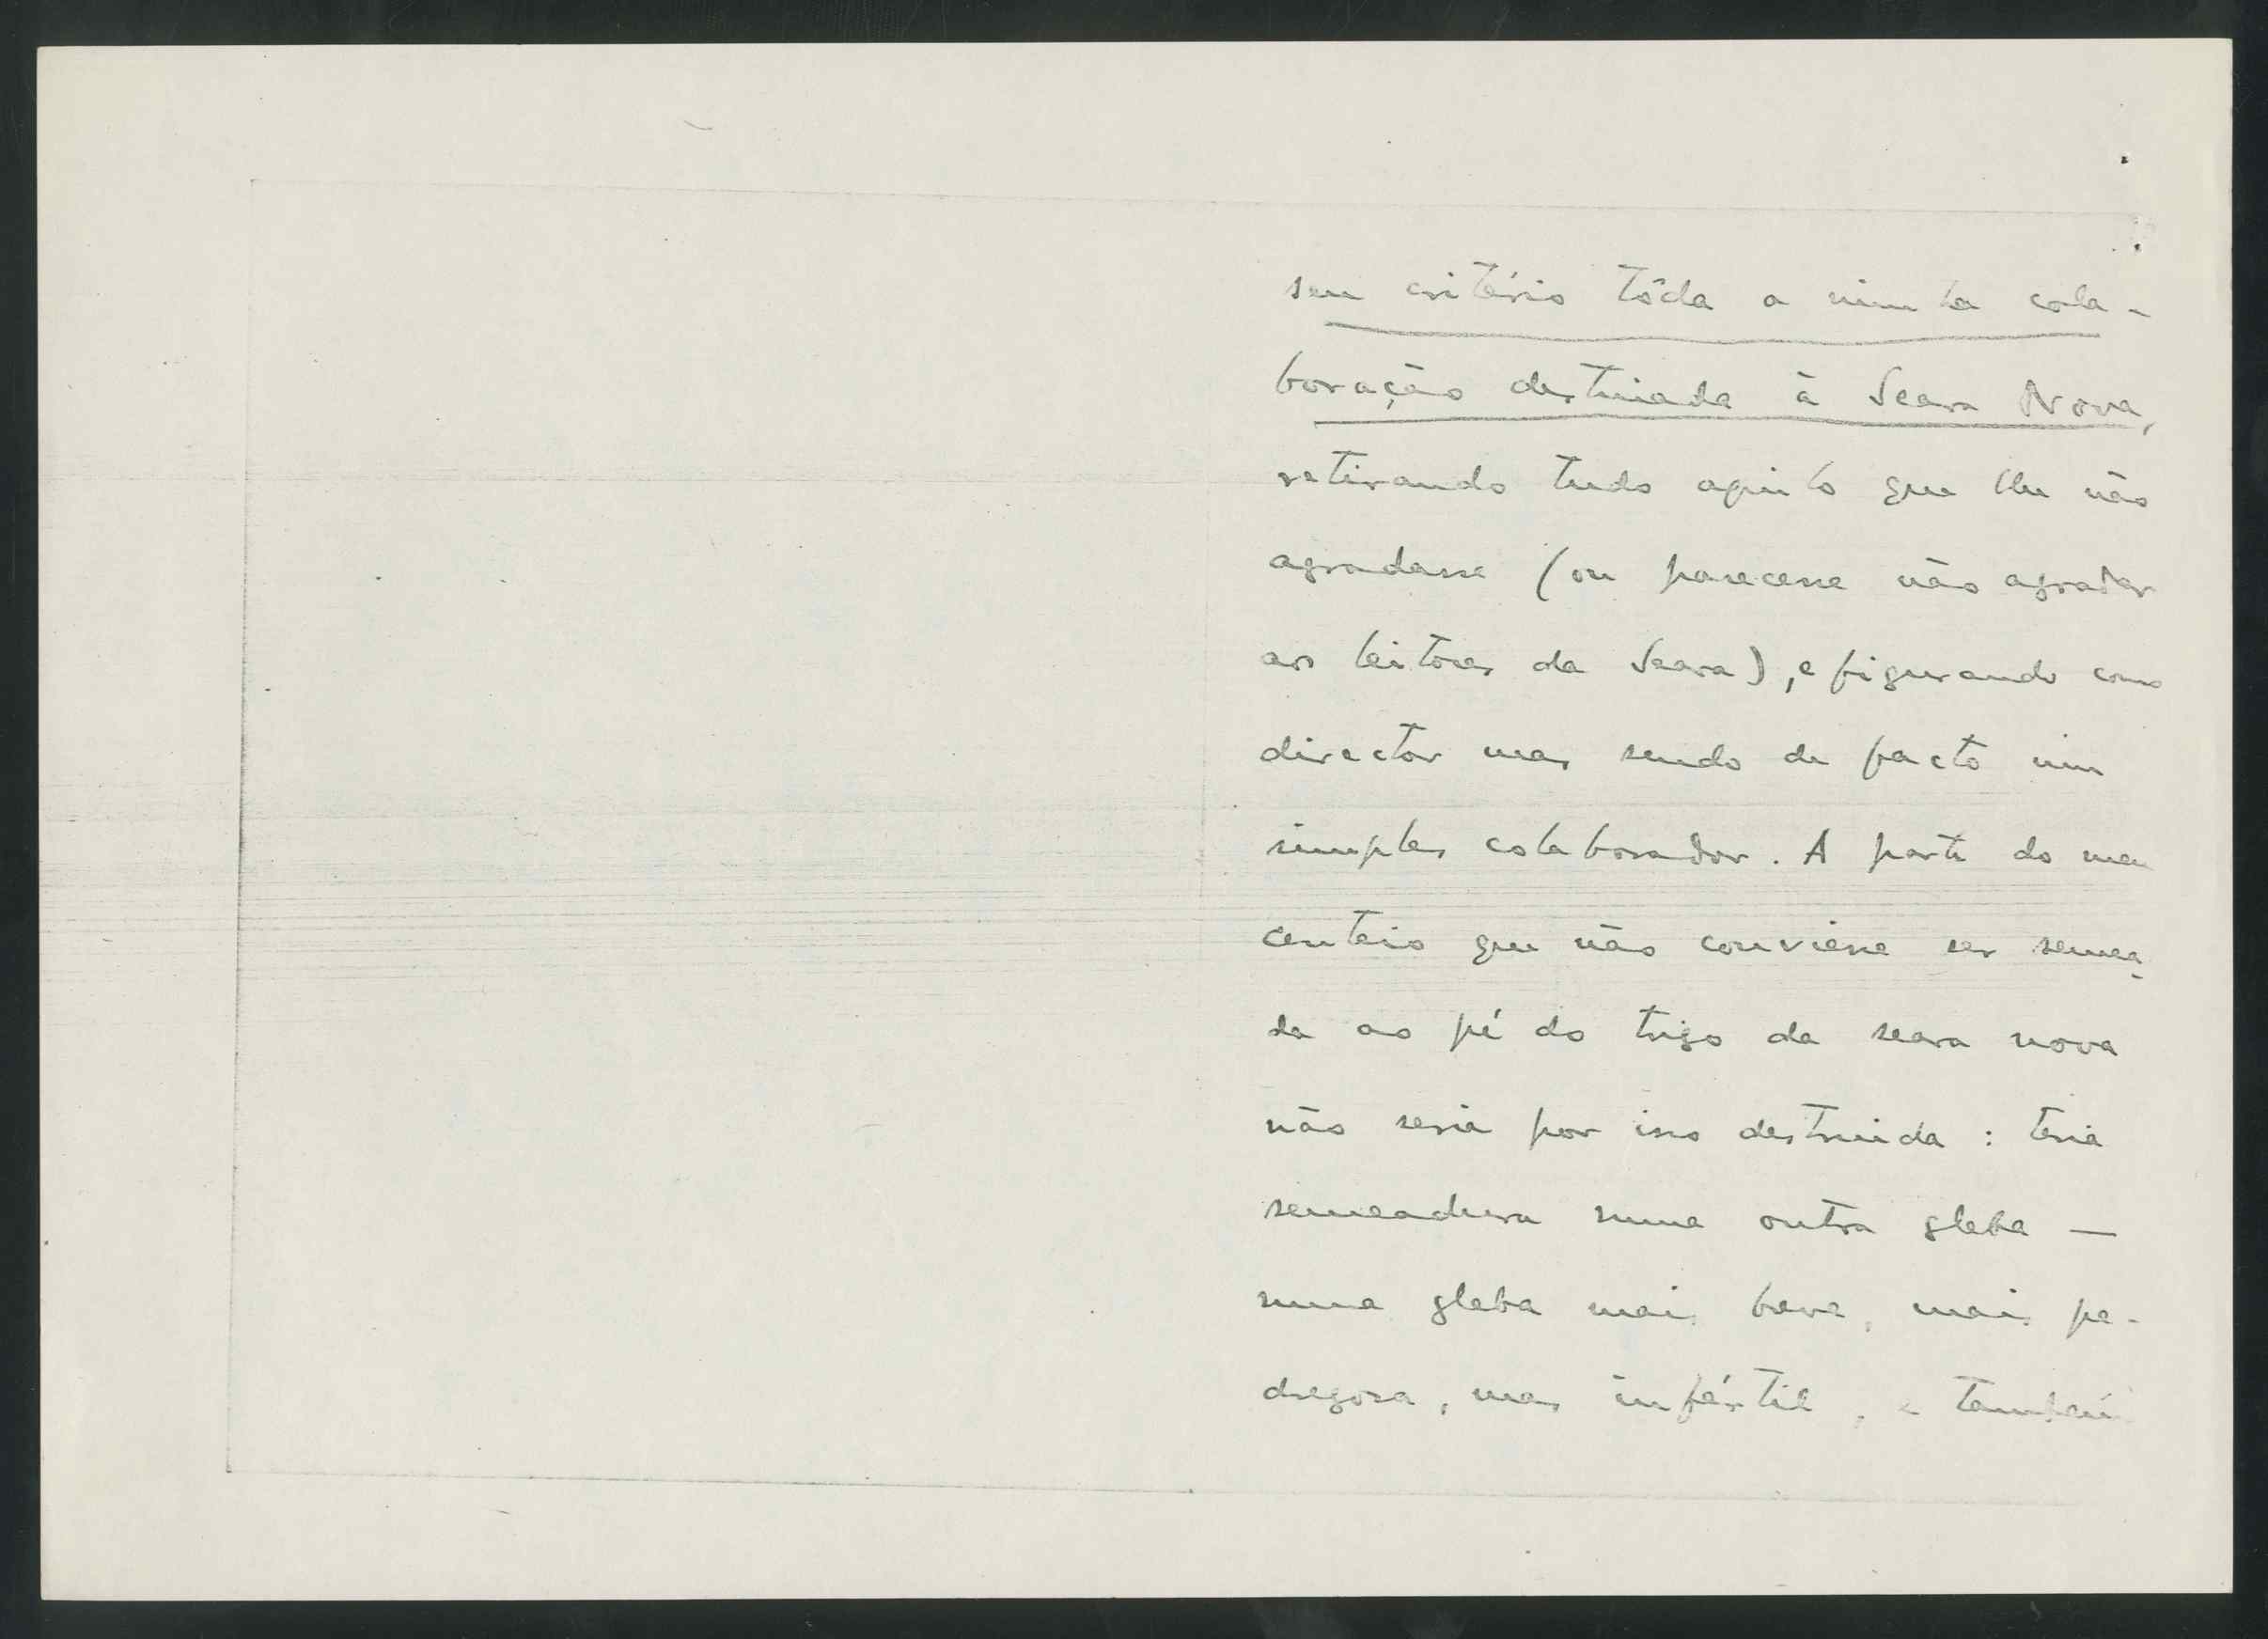 seu critério tôda a minha cola-
boração destinada à Seara Nova,
retirando tudo aquilo que lhe não
agradasse (ou parecesse não agradar
aos leitores da Seara), e figurando como
director mas sendo de facto um
simples colaborador. A parte do meu
centeio que não conviesse ser semea-
da ao pé do trigo da seara nova
não seria por isso destruida : teria
semeadura numa outra gleba —
numa gleba mais brava, mais pe-
dregosa, mas infértil, e também